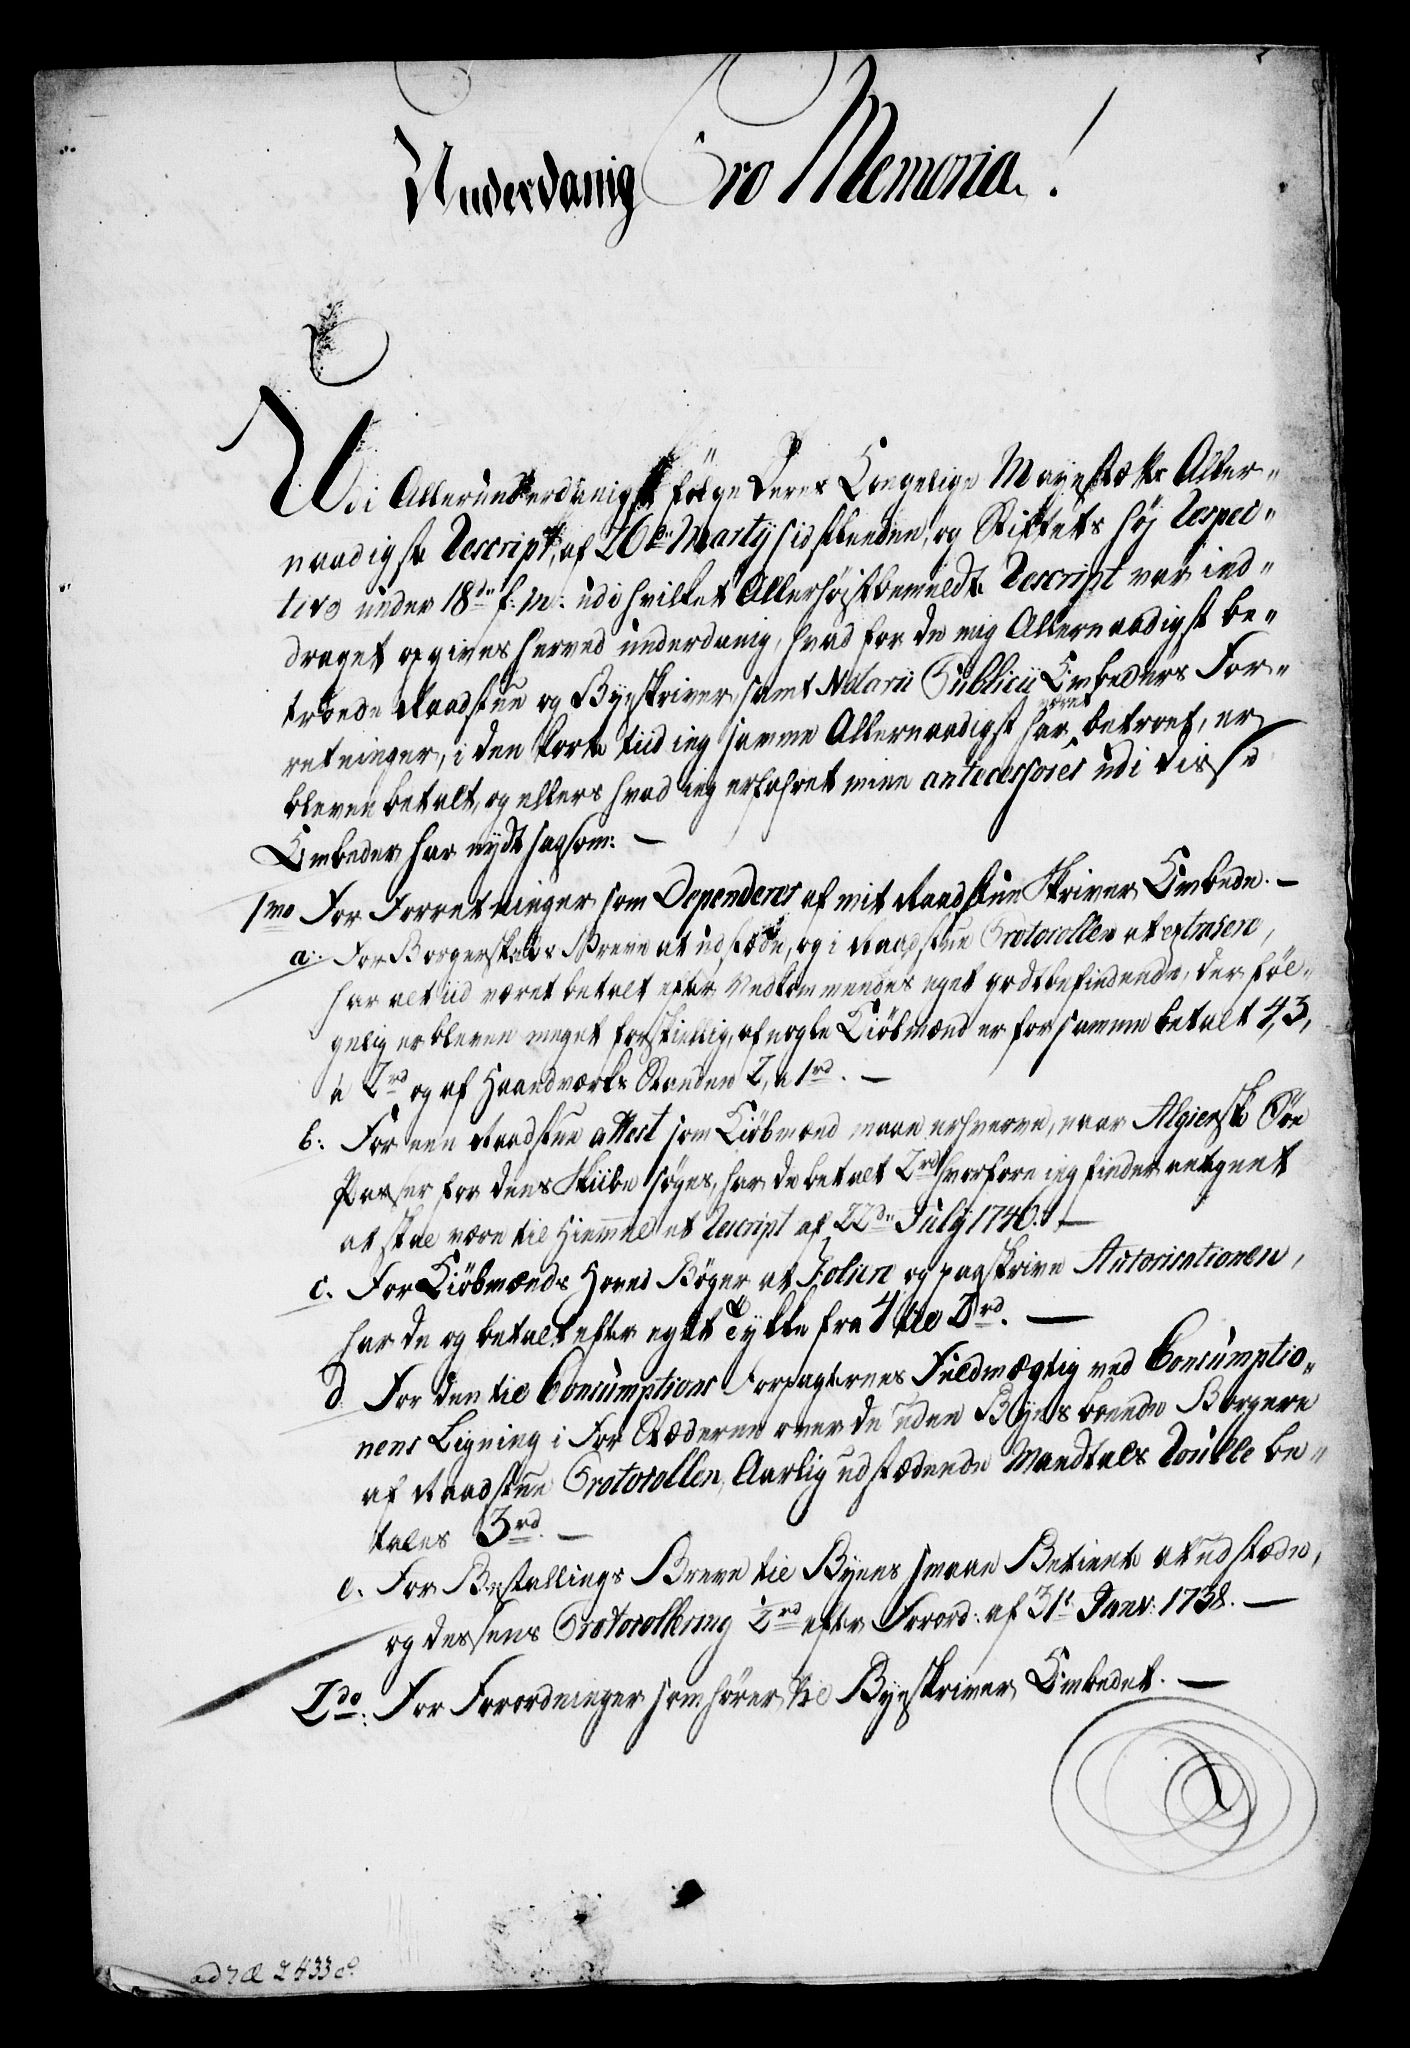 Underdanig Pro Memoria!
Udi Allerunderdanigst følge Deres Kongelige Mayestæts Aller-
naadigste Rescript, af 26de Martij sidstleeden, og Stiftets høj Respec-
tive under 18de f: M: udi hvilket Allerhøjstbemeldte Rescript var ind-
draget opgives herved underdanig, hvad for de mig Allernaadigst be-
troede Raadstue og Byeskriver, samt Notarii Publicij Embeders For-
retninger, i den korte tiid ieg samme Allernaadigst har været betroet, er
bleven betalt, og ellers hvad ieg erfahret mine antecessores udi disse
Embeder har nydt, saasom: —
1mo For Forretninger som Dependeres af mit Raadstue Skriver Embede. —
a: For Borgerskabs Breve at udstæde, og i Raadstue Protocollen at extrahere,
har altiid været betalt efter Vedkommendes eget godtbefindende, der føl-
gelig er bleven meget forskiellig, af nogle Kiöbmænd er for samme betalt 4, 3,
a 2rd og af Haandværks Standen 2, a 1rd. —
b: For een Raadstue attest som Kiöbmænd maae erhverve, naar Algiersk Søe
Passer for dens Skiibe søges, har de betalt 2rd hvorfore ieg finder antegnet
at skal være til Hiemmel et Rescript af 22de July 1746. —
c. For Kiöbmænds Hoved Bøger at Foliere og paaskrive Autorisationen,
har de og betalt efter eget Tykke fra 4 til 2rd. —
d. For den til Consumptions Forpagternes Fuldmægtig ved Consumptio-
nens Ligning i For Stæderne over de uden Byens boende Borgere
af Raadstue Protocollen, Aarlig udstædende Mandtals Roulle be-
tales 3rd. —
e. For Bestallings Breve til Byens smaae Betiente at udstæde,
og dessens Protocollering 2rd efter Forord: af 31t Janv: 1738. —
2do: For Forordninger som hører til Byeskriver Embedet. —
ad No 2433 c.